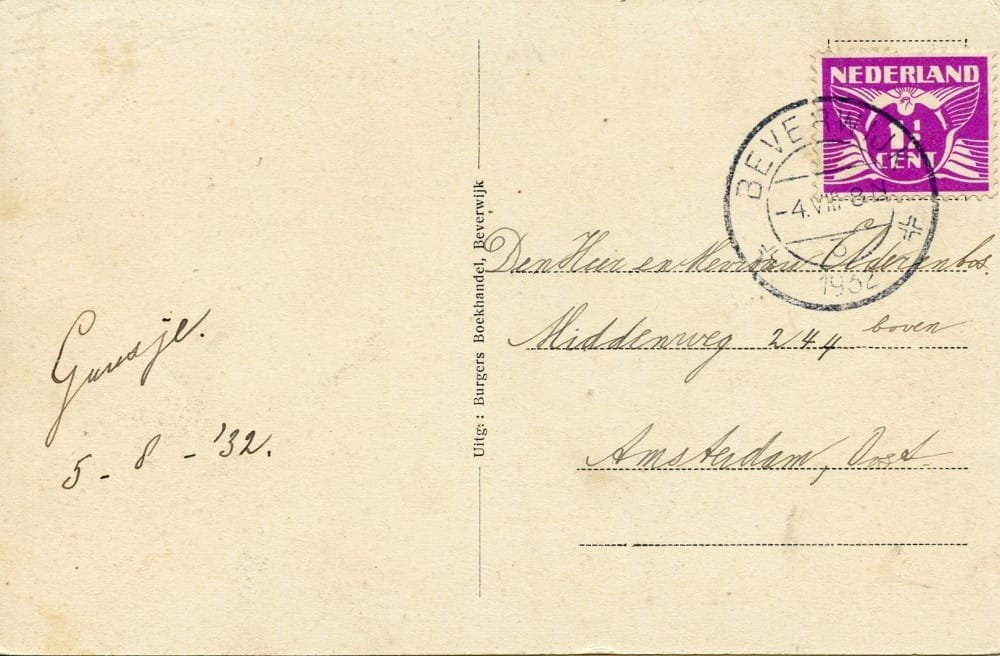 NEDERLAND
1½
CENT
BEVERWIJK
-4.VIII 8.N
1932
Den Heer en Mevrouw Elderenbos
Middenweg 244 boven
Amsterdam, Oost
Guusje.
5 - 8 - '32.
Uitg.: Burgers Boekhandel, Beverwijk